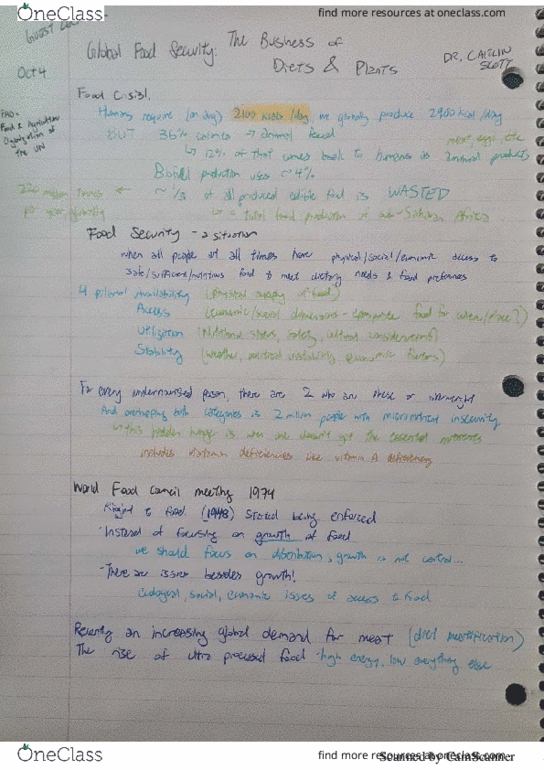 OneClass
find more resources at oneclass.com
GUEST
Oct 4
Global Food Security: The Business of
Diets & Plants
DR. CAITLIN
SCOTT
Food Crisis!
FAO-
Food & Agriculture
Organization of
the UN
Humans require (on avg) 2100 kcals/day, we globally produce 2900 kcal/day
BUT 36% calories → animal feed
meat, eggs, etc
↳ 12% of that comes back to humans as animal products
Biofuel production uses ~4%
~ 1/3 of all produced edible food is WASTED
per year globally
↳ = total food production of sub-Saharan Africa
Food Security → a situation
when all people at all times have physical/social/economic access to
safe/sufficient/nutritious food to meet dietary needs & food preferences
4 pillars: Availability (physical supply of food)
Access (economic/social dimensions - food for
Utilization (Nutritional safety, cultural considerations)
Stability (weather, political instability, economic factors)
For every undernourished person, there are 2 who are obese or overweight
And overlapping both categories is 2 billion people with micronutrient insecurity
hidden hunger is when one doesn't get the essential nutrients
includes vitamin deficiencies like vitamin A deficiency
World Food Council meeting 1974
Right to food (1948) started being enforced
- Instead of focusing on growth of food
we should focus on distribution, growth is not
- There are issues besides growth!
ecological, social, economic issues of access to food
Recently an increasing global demand for meat (diet meatification)
The rise of ultra processed food - high energy, low everything else
OneClass
find more resources at oneclass.com
Scanned by CamScanner